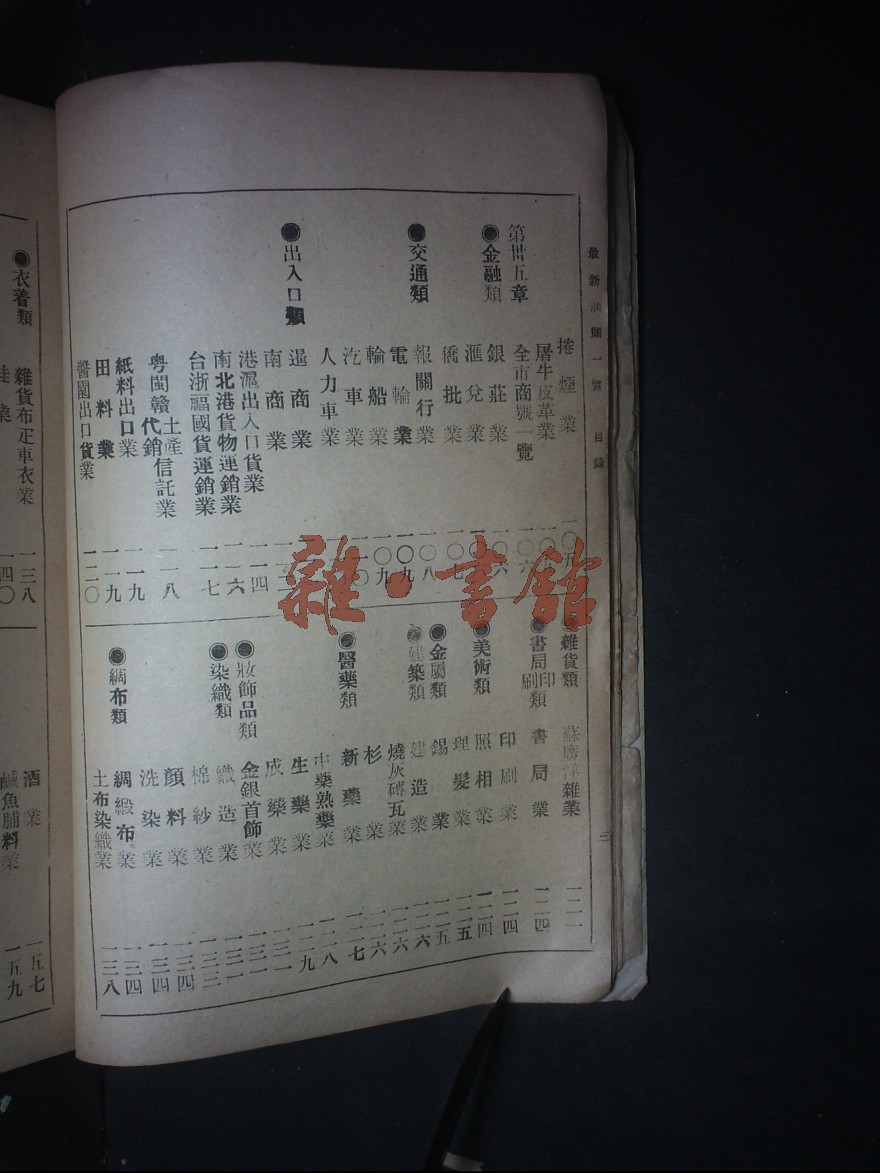 最新汕頭一覽 目錄
三
捲煙業 一〇五
屠牛皮革業
第卅五章 全市商號一覽
●金融類 銀莊業
滙兌業
僑批業
●交通類 報關行業
電輪業
輪船業
汽車業
人力車業
●出入口類 暹商業
南商業
港滬出入口貨業 一一四
南北港貨物運銷業 一一六
台浙福國貨運銷業 一一七
粤閩贛土產代銷信託業 一一八
紙料出口業 一一九
田料業 一一九
醬園出口貨業 一二〇
●雜貨類 蘇廣洋雜業
●書局印刷類 書局業 一二四
印刷業 一二四
●美術類 照相業 一二四
理髮業 一二五
●金屬類 錫業 一二五
●建築類 建造業 一二六
燒灰磚瓦業 一二六
杉業 一二六
●醫藥類 新藥業 一二七
中藥熟藥業 一二八
生藥業 一二九
成藥業 一三一
●妝飾品類 金銀首飾業 一三一
●染織類 織造業 一三一
棉紗業 一三三
顏料業 一三四
洗染業 一三四
●綢布類 綢緞布業 一三四
土布染織業 一三八
●衣着類 雜貨布疋車衣業 一三八
鞋業 一四〇
酒業 一五七
鹹魚脯料業 一五九
雜·書館